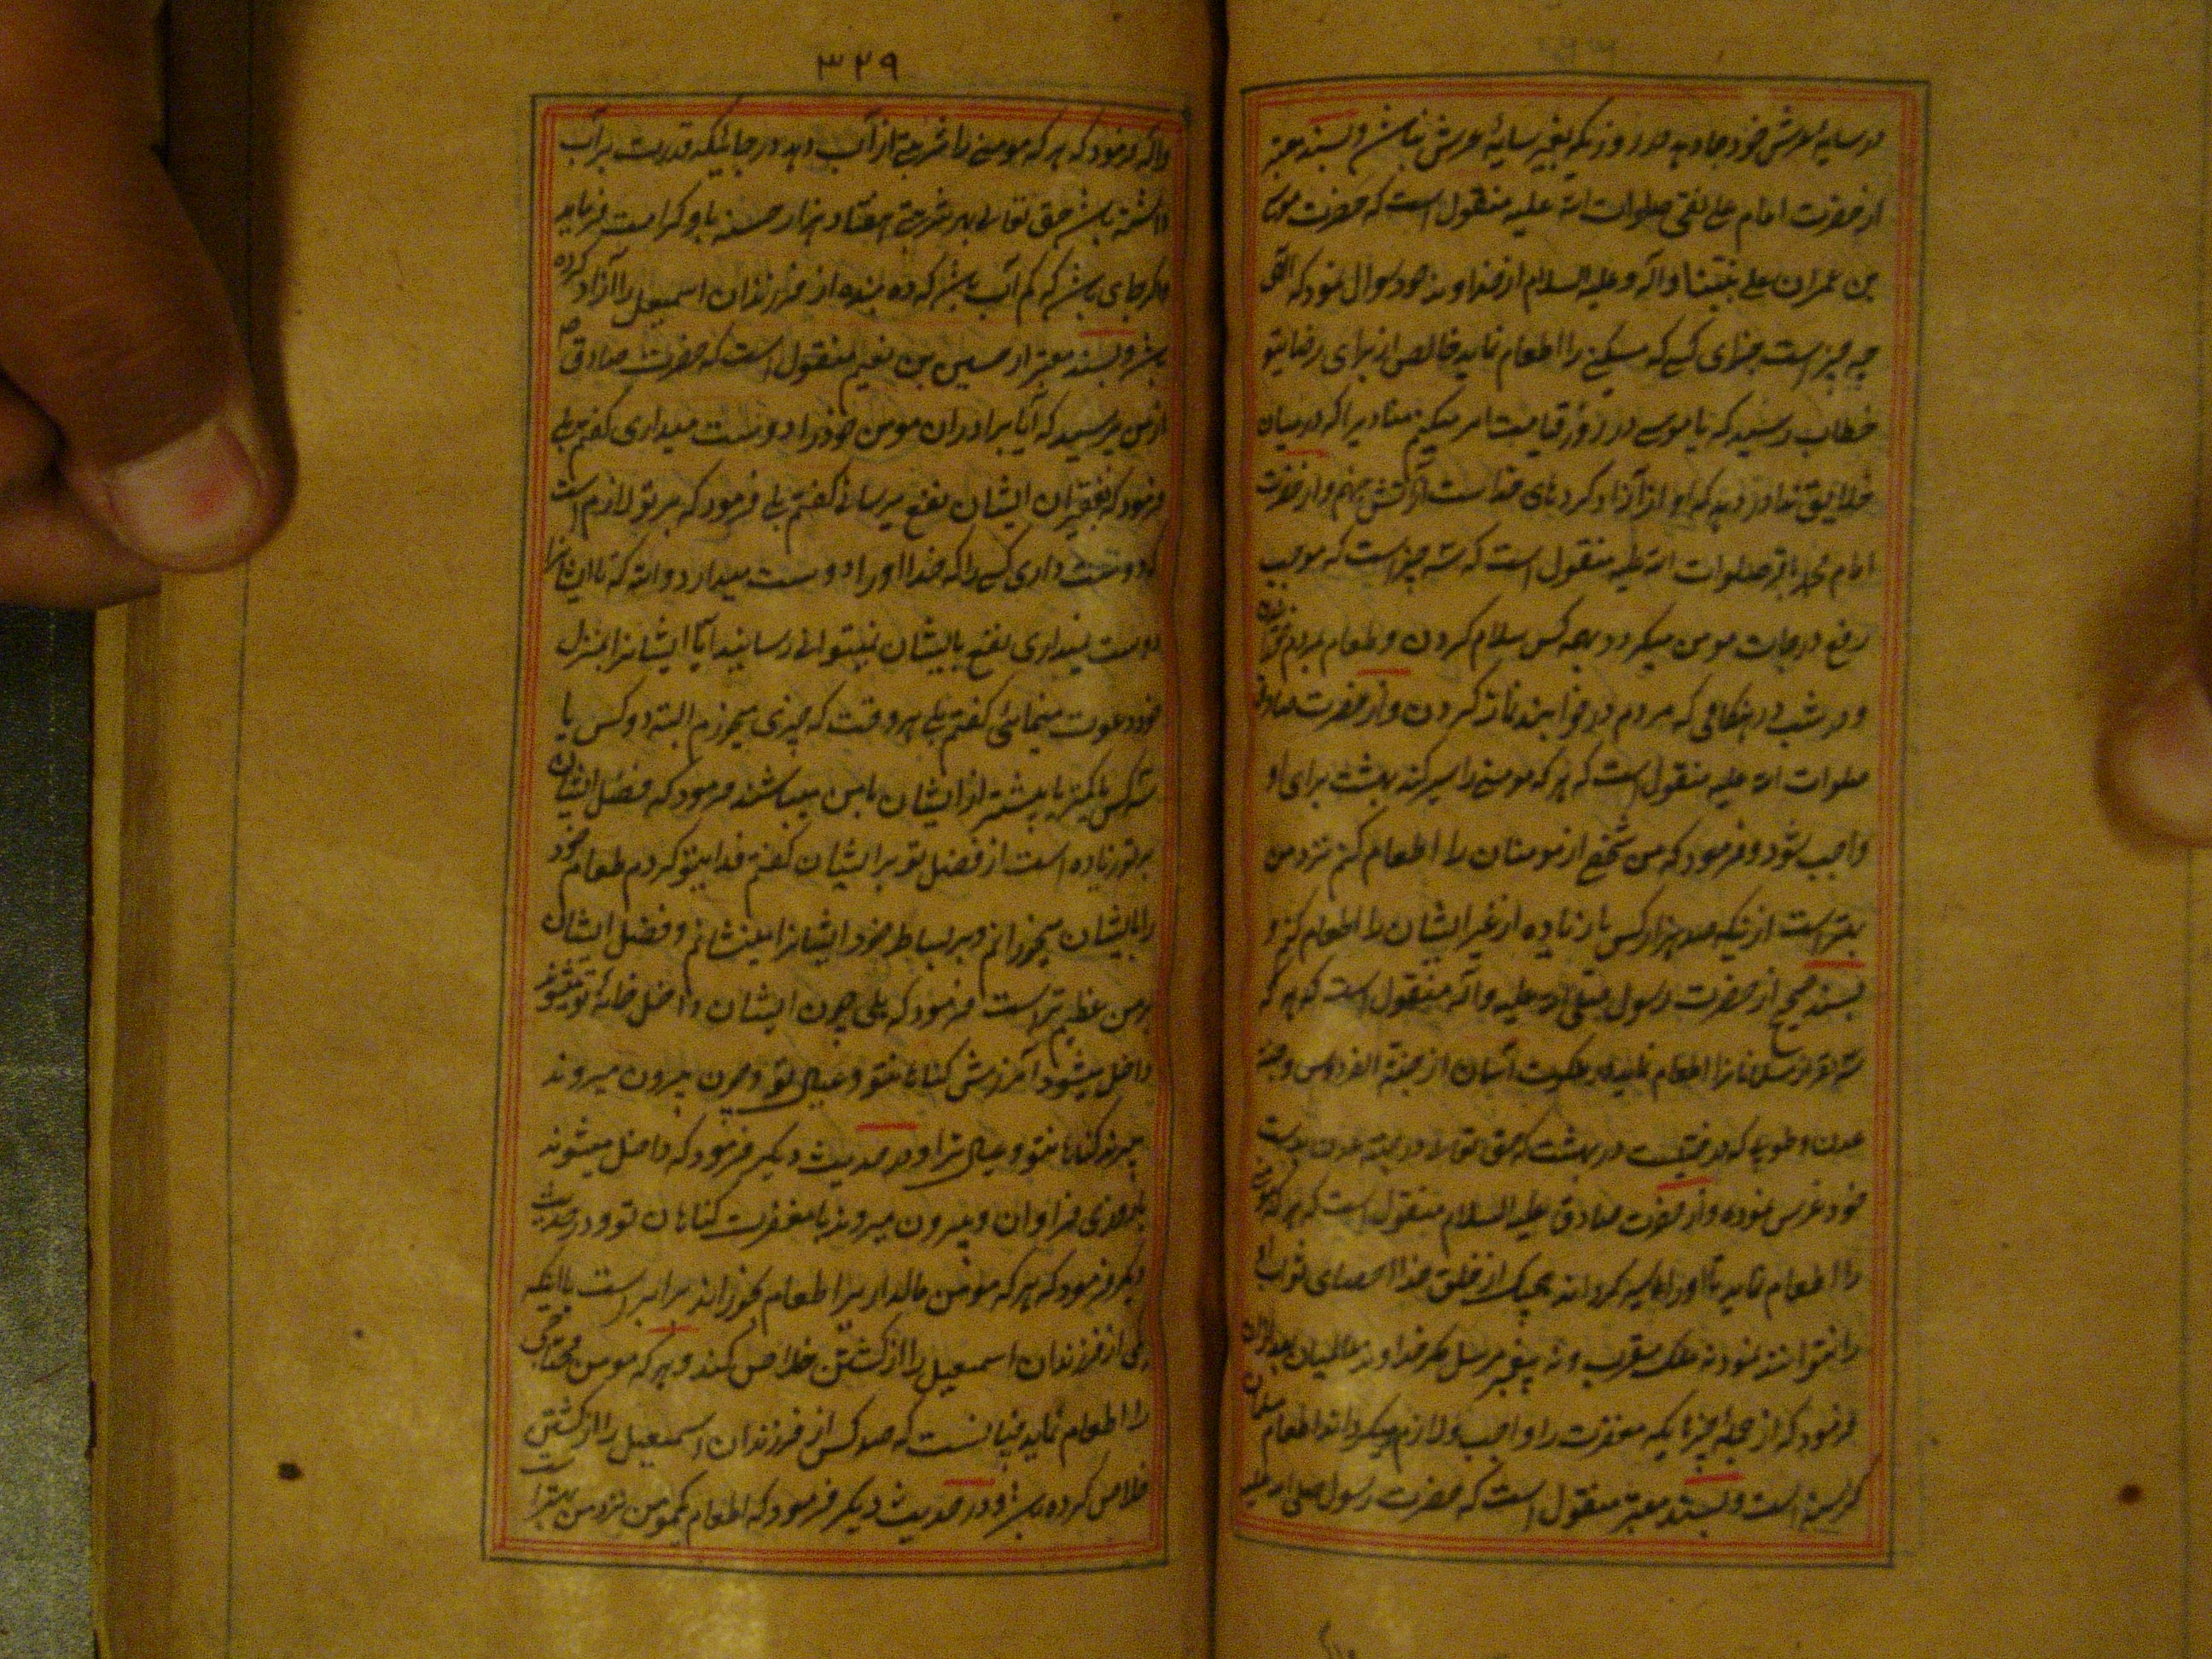 در سایه عرش خود جا دهد در روزیکه بغیر سایه عرش نباشد و بسند معتبر
از حضرت امام علی نقی صلوات الله علیه منقول است که حضرت موسی
بن عمران علی نبینا و آله و علیه السلام از خداوند خود سوال نمود که الهی
چه چیز است جزای کسی که مسکینی را اطعام نماید خالص از برای رضای تو
خطاب رسید که یا موسی در روز قیامت امر میکنم منادیرا که در میان
خلایق ندا در دهد که او از آزاد کردهای خداست از آتش جهنم و از حضرت
امام محمد باقر صلوات الله علیه منقول است که سه چیز است که موجب
رفع درجات مومن میگردد بهمه کس سلام کردن و طعام بمردم خورانیدن
و در شب در هنگامی که مردم در خوابند نماز کردن و از حضرت صادق
صلوات الله علیه منقول است که هر که مومنی را سیر کند بهشت برای او
واجب شود و فرمود که من شخصی از مومنان را اطعام کنم نزد من
بهتر است از آنکه صد هزار کس یا زیاده از غیر ایشان را اطعام کنم و
بسند صحیح از حضرت رسول صلی الله علیه و آله منقول است که هر که
سه نفر از مسلمانانرا اطعام نماید ملکوت آسمان از جنة الفردوس و جنة
عدن و طوبی که درختیست در بهشت که حق تعالی در جنة عدن بدست
خود غرس نموده و از حضرت صادق علیه السلام منقول است که هر که مومنی
را اطعام نماید تا او را سیر گرداند هیچیک از خلق خدا احصای ثواب او
را نتوانند نمود نه ملک مقرب و نه پیغمبر مرسل مگر خداوند عالمیان بعد از آن
فرمود که از جمله چیزهائیکه مغفرت را واجب و لازم میگرداند اطعام مسلمان
گرسنه است و بسند معتبر منقول است که حضرت رسول صلی الله علیه
۳۲۹
و آله فرمود که هر که مومنی را شربتی از آب دهد در جائیکه قدرت بر آب
داشته باشد حق تعالی بهر شربتی هفتاد هزار حسنه باو کرامت فرماید
و اگر جای باشد که کم آب باشد که ده بنده از فرزندان اسمعیل را آزاد کرده
باشد و بسند معتبر از حسین بن نعیم منقول است که حضرت صادق ص
از من پرسید که آیا برادران مومن خود را دوست میداری گفتم بلی
فرمود که بفقیران ایشان نفع میرسانی گفتم بلی فرمود که بر تو لازم است
که دوست داری کسی را که خدا او را دوست میدارد والله که تا ایشانرا
دوست نداری نفع بایشان نمیتوانی رسانید آیا ایشانرا بمنزل
خود دعوت مینمائی گفتم بلی هر وقت که چیزی میخورم البته دو کس یا
سه کس یا کمتر یا بیشتر از ایشان با من میباشند فرمود که فضل ایشان
بر تو زیاده است از فضل تو بر ایشان گفتم فدای تو گردم طعام خود
را بایشان میخورانم و بر بساط خود ایشانرا مینشانم و فضل ایشان
بر من عظیم تر است فرمود که بلی چون ایشان داخل خانه تو میشوند
داخل میشود آمرزش گناهان تو و عیال تو و چون بیرون میروند
میبرند گناهان تو و عیال ترا و در حدیث دیگر فرمود که داخل میشوند
با روزی فراوان و بیرون میروند با مغفرت گناهان تو و در حدیث
دیگر فرمود که هر که مومن مالداریرا اطعام بخوراند برابر است با اینکه
یکی از فرزندان اسمعیل را از کشتن خلاص کند و هر که مومن محتاجی
را اطعام نماید چنانست که صد کس از فرزندان اسمعیل را از کشتن
خلاص کرده باشد و در حدیث دیگر فرمود که اطعام یکمومن نزد من بهتر است